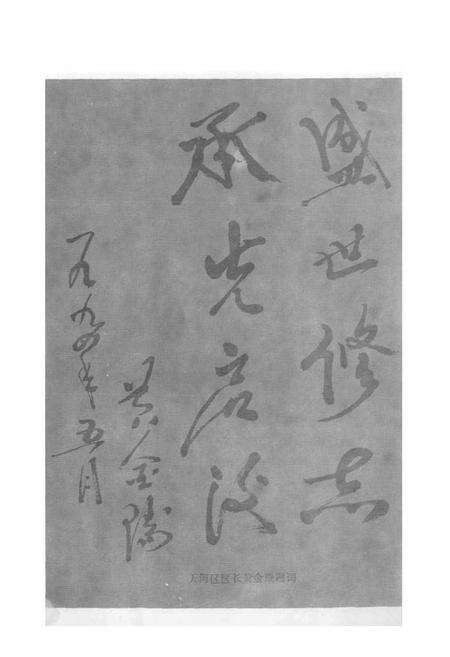 盛世修志
承先启後
黄金
一九九四年五月
河区区长黄金题词